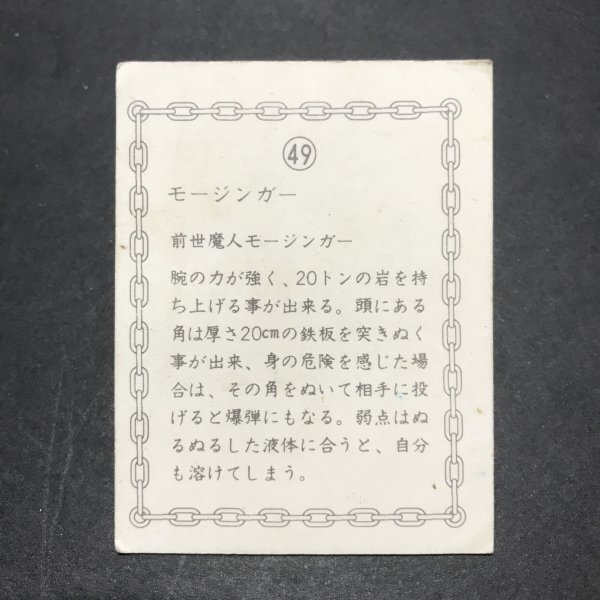 49
モージンガー
前世魔人モージンガー
腕の力が強く、20トンの岩を持
ち上げる事が出来る。頭にある
角は厚さ20cmの鉄板を突きぬく
事が出来、身の危険を感じた場
合は、その角をぬいて相手に投
げると爆弾にもなる。弱点はぬ
るぬるした液体に合うと、自分
も溶けてしまう。